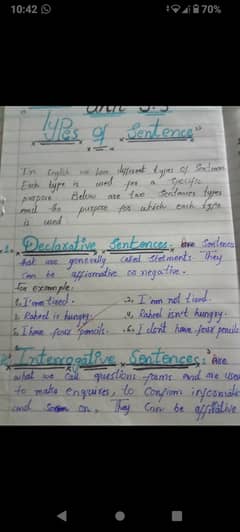 10:42
70%
Unit 5.5
Types of Sentence"
In English we have different types of Sentences
Each type is used for a specific
purpose. Below are two Sentences types
and the purpose for which each type
is used
1. Declarative Sentences: are Sentences
that are generally called statements. They
can be affirmative or negative.
for example:
1. I'm tired. 2. I am not tired.
3. Raheel is hungry. 4. Raheel isn't hungry.
5. I have four pencils. 6. I dont have four pencils
Interrogative Sentences: Are
what we call questions forms and are used
to make enquires, to Confirm
and so on. They Can be